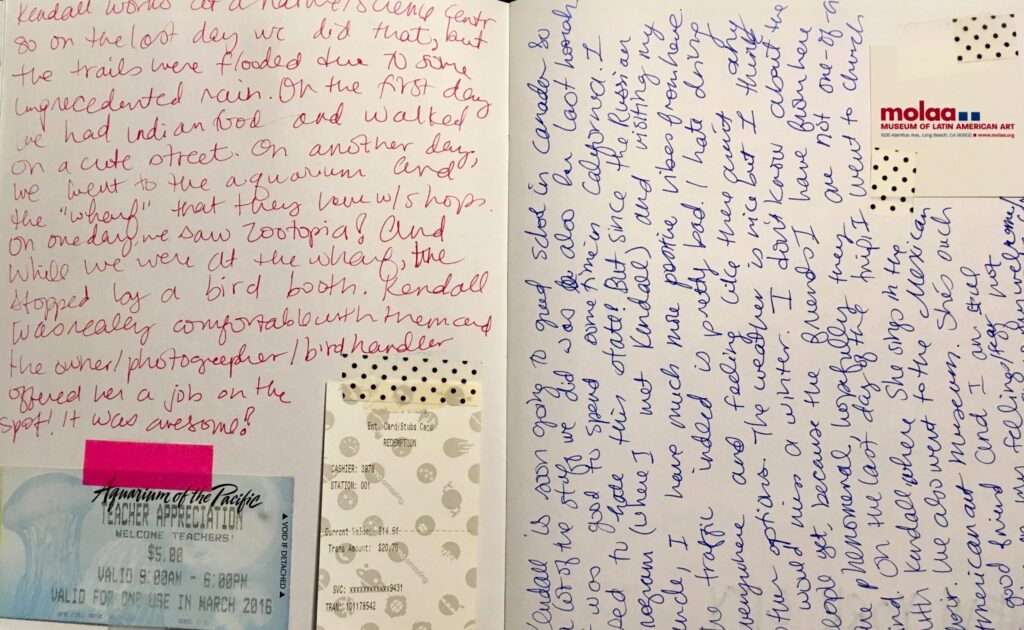 Kendall works at a nature/science center
so on the last day we did that, but
the trails were flooded due to some
unprecedented rain. On the first day
we had indian food and walked
on a cute street. On another day,
we went to the aquarium and
the "wharf" that they have w/ shops.
On one day, we saw Zootopia! And
while we were at the wharf, we
stopped by a bird booth. Kendall
was really comfortable with them and
the owner/photographer/bird handler
offered her a job on the
spot! It was awesome!
Aquarium of the Pacific
TEACHER APPRECIATION
WELCOME TEACHERS!
$5.00
VALID 9:00AM - 6:00PM
VALID FOR ONE USE IN MARCH 2016
VOID IF DETACHED
Ent. Card/Stubs Card
REDEMPTION
CASHIER: 3978
STATION: 001
Current Value: $14.64
Trans Amount: $20.76
SVC: xxxxxxxxxxxx9431
TRAN: 101178542
Kendall is soon going to grad school in Canada so
a lot of the stuff we did was also her last hoorah
It was good to spend some time in California. I
used to hate this state! But since the Russian
program (where I met Kendall) and visiting my
friends, I have much more positive vibes from here.
The traffic indeed is pretty bad. I hate driving
everywhere and feeling like there aren't any
other options. The weather is nice but I think
I would miss a winter. I don't know about the
people yet, because the friends I have from here
are phenomenal, hopefully they are not one-of-a
kind. On the last day of the trip I went to church
with Kendall where she sings in the
choir. We also went to the Mexican
American art museum. She's such
a good friend and I am still
in my feelings/fear not
molaa
MUSEUM OF LATIN AMERICAN ART
628 Alamitos Ave., Long Beach, CA 90802 www.molaa.org